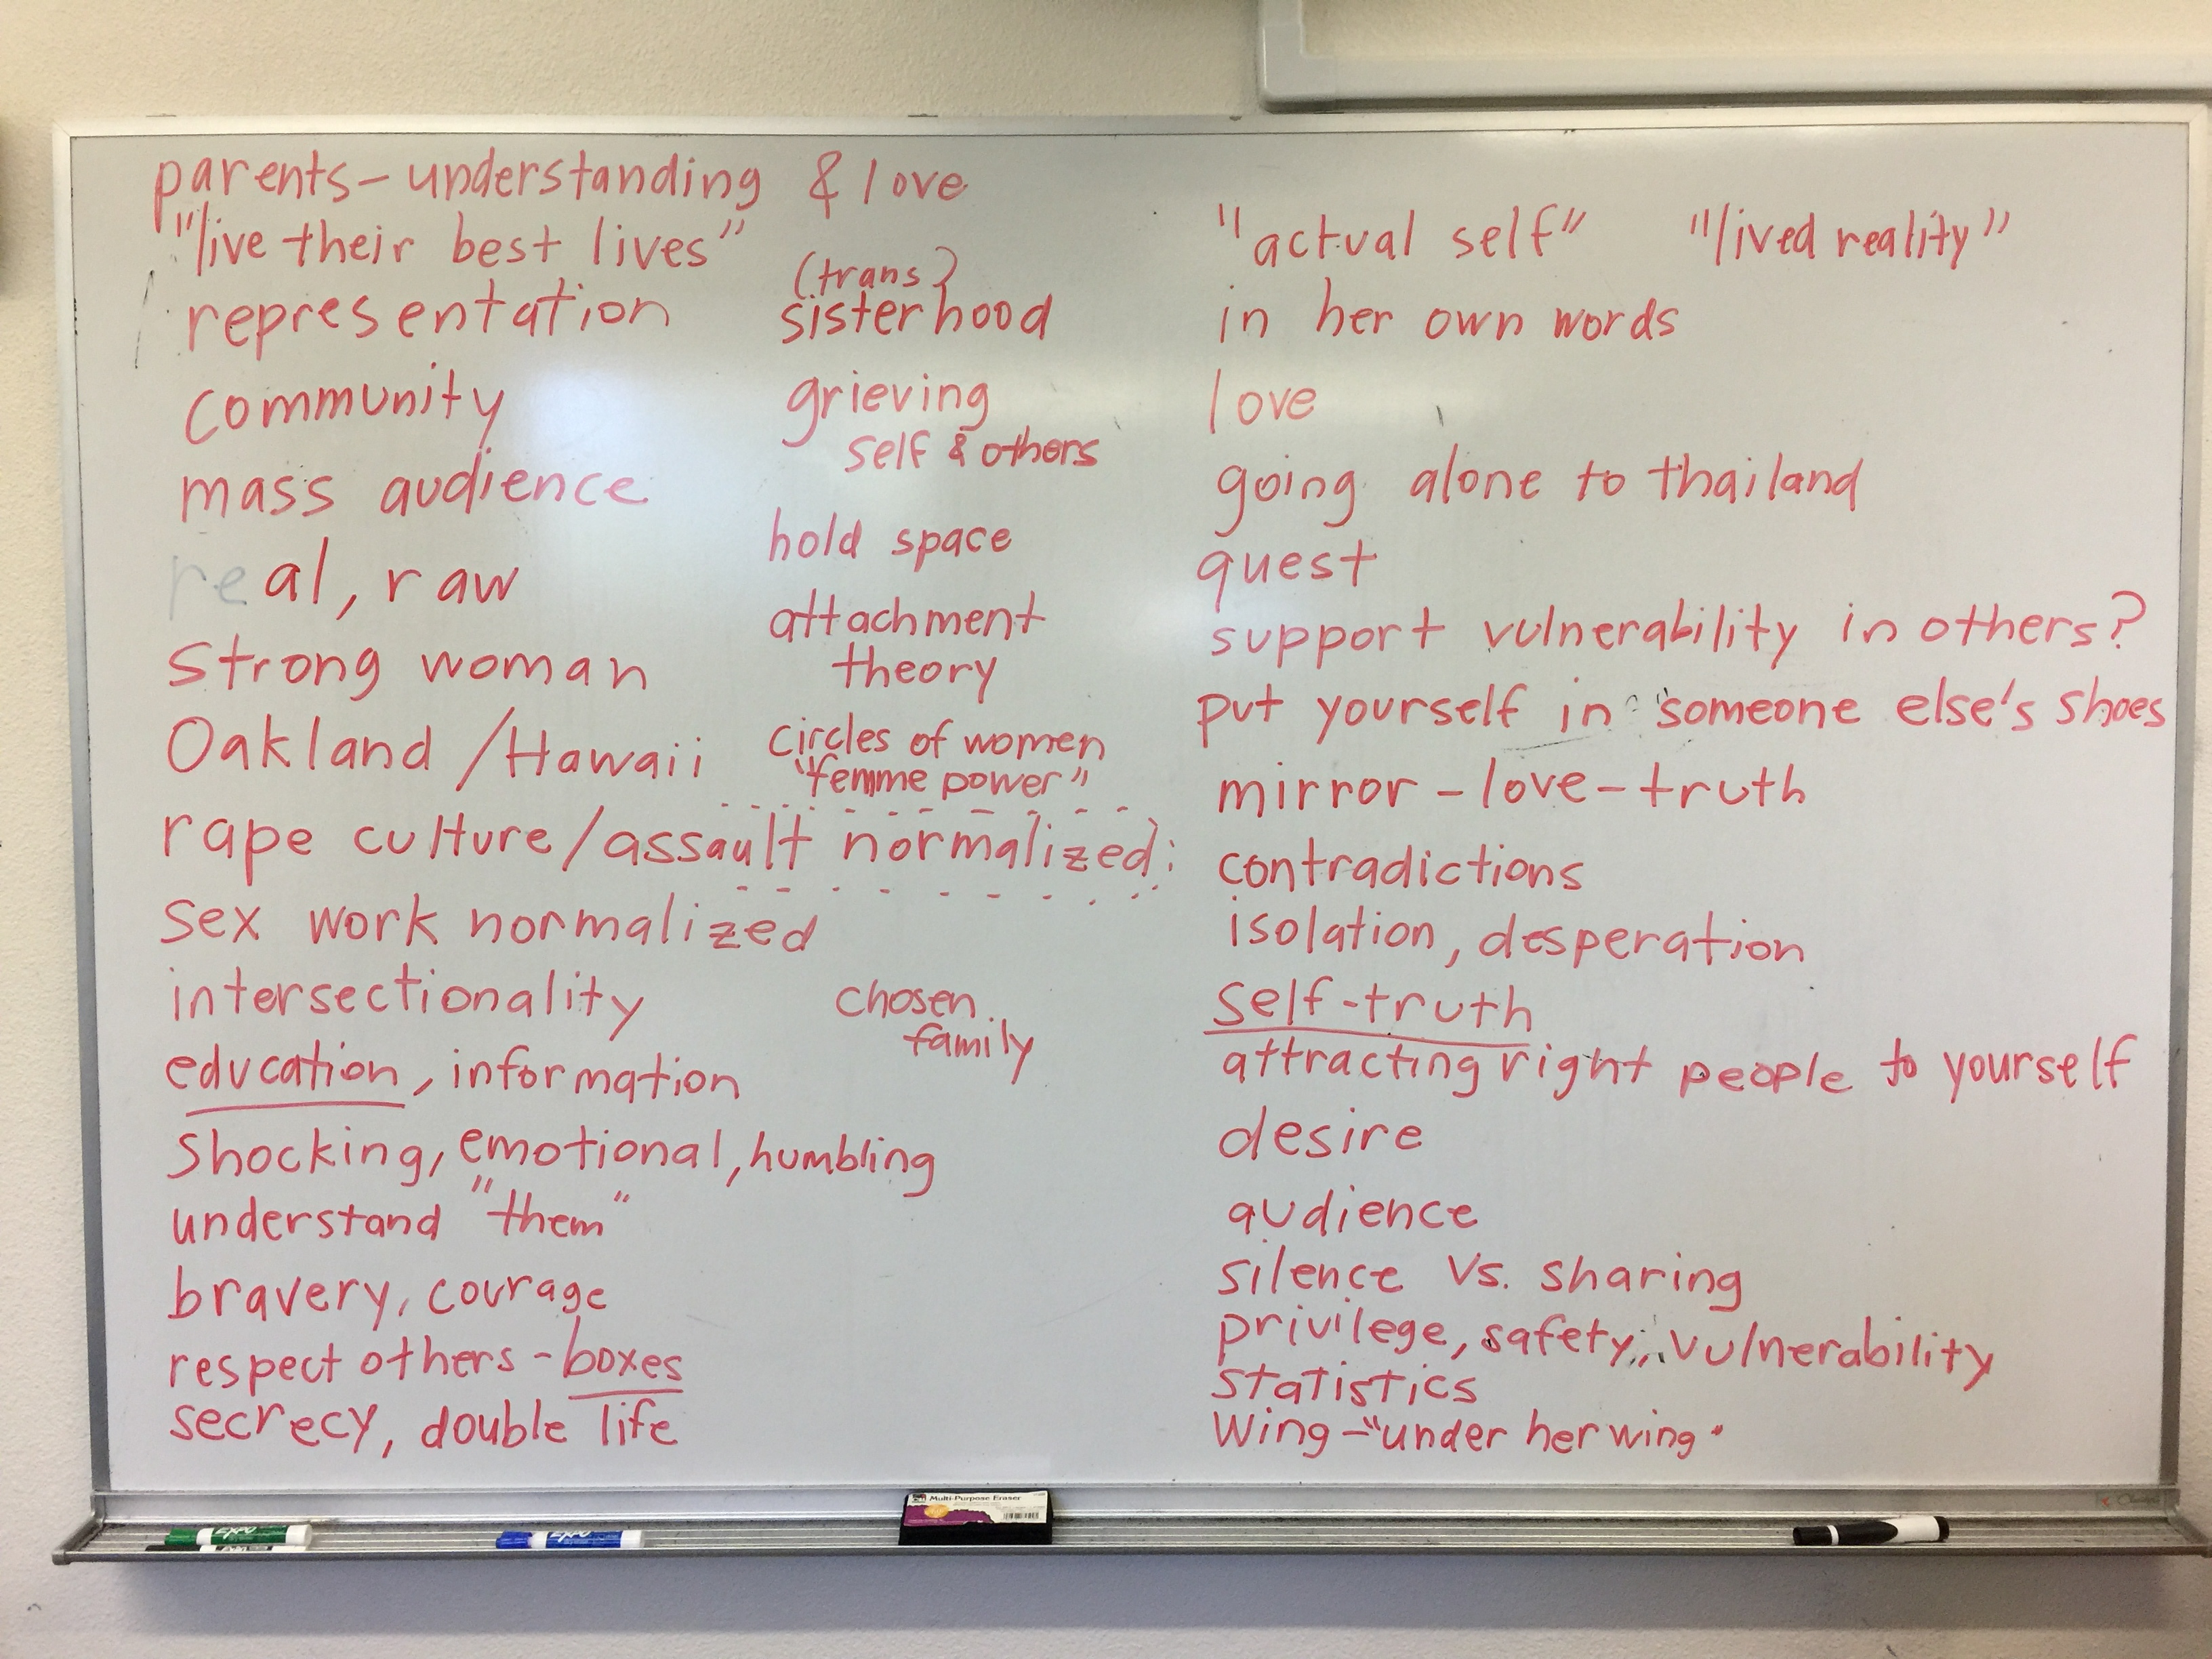 parents - understanding & love
"live their best lives"
representation
community
mass audience
real, raw
strong woman
Oakland / Hawaii
rape culture / assault normalized
sex work normalized
intersectionality
education, information
shocking, emotional, humbling
understand "them"
bravery, courage
respect others - boxes
secrecy, double life
(trans)
sisterhood
grieving
self & others
hold space
attachment
theory
circles of women
"femme power"
chosen
family
"actual self" "lived reality"
in her own words
love
going alone to thailand
quest
support vulnerability in others?
put yourself in someone else's shoes
mirror - love - truth
contradictions
isolation, desperation
self-truth
attracting right people to yourself
desire
audience
silence vs. sharing
privilege, safety, vulnerability
statistics
Wing - "under her wing"
EXPO
EXPO
Multi-Purpose Eraser